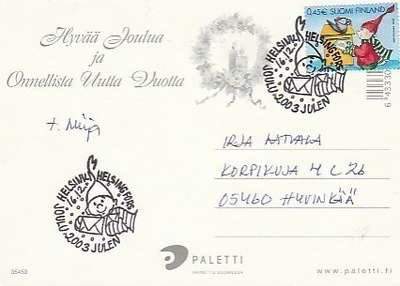 Hyvää Joulua
ja
Onnellista Uutta Vuotta
0,45€ SUOMI FINLAND
HELSINKI HELSINGFORS
JOULU-2003 JULEN
6 43330
IRJA
KORPIKUJA 4 C 26
05460 HYVINKÄÄ
HELSINKI HELSINGFORS
JOULU-2003 JULEN
35453
PALETTI
PAINETTU SUOMESSA
www.paletti.fi